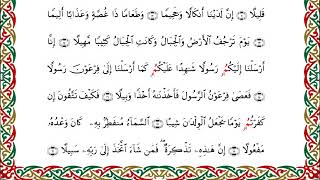 قَلِيلًا ۝ إِنَّ لَدَيْنَا أَنكَالًا وَجَحِيمًا ۝ وَطَعَامًا ذَا غُصَّةٍ وَعَذَابًا أَلِيمًا
۝ يَوْمَ تَرْجُفُ الْأَرْضُ وَالْجِبَالُ وَكَانَتِ الْجِبَالُ كَثِيبًا مَّهِيلًا ۝ إِنَّا
أَرْسَلْنَا إِلَيْكُمْ رَسُولًا شَاهِدًا عَلَيْكُمْ كَمَا أَرْسَلْنَا إِلَىٰ فِرْعَوْنَ رَسُولًا
۝ فَعَصَىٰ فِرْعَوْنُ الرَّسُولَ فَأَخَذْنَاهُ أَخْذًا وَبِيلًا ۝ فَكَيْفَ تَتَّقُونَ إِن
كَفَرْتُمْ يَوْمًا يَجْعَلُ الْوِلْدَانَ شِيبًا ۝ السَّمَاءُ مُنفَطِرٌ بِهِ ۚ كَانَ وَعْدُهُ
مَفْعُولًا ۝ إِنَّ هَٰذِهِ تَذْكِرَةٌ ۖ فَمَن شَاءَ اتَّخَذَ إِلَىٰ رَبِّهِ سَبِيلًا ۝